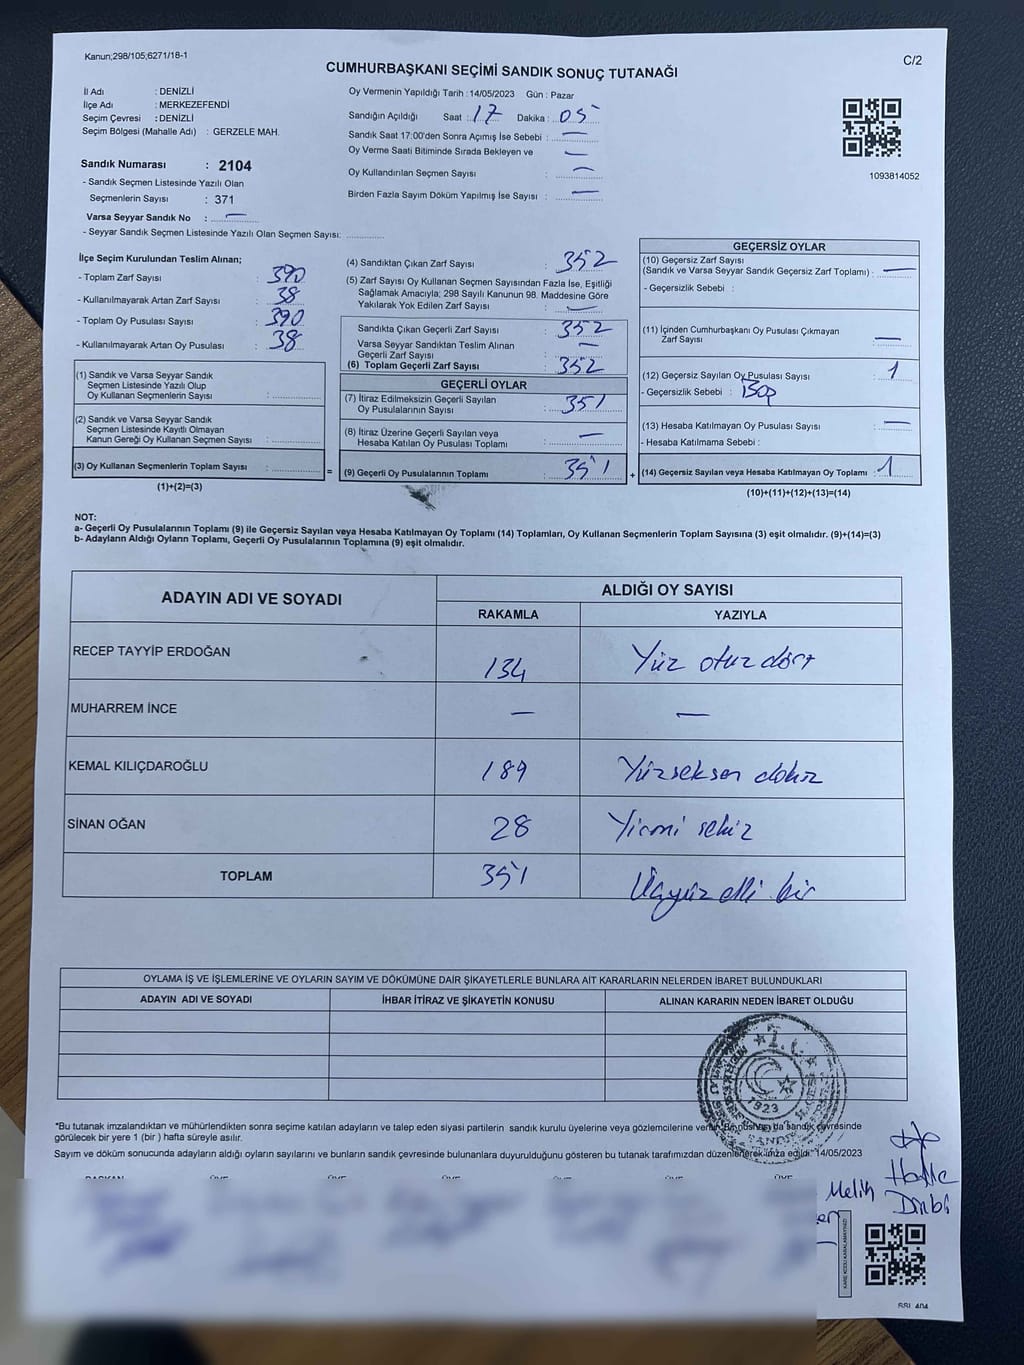 Kanun;298/105;6271/18-1
C/2
CUMHURBAŞKANI SEÇİMİ SANDIK SONUÇ TUTANAĞI
İl Adı : DENİZLİ
İlçe Adı : MERKEZEFENDİ
Seçim Çevresi : DENİZLİ
Seçim Bölgesi (Mahalle Adı) : GERZELE MAH.
Sandık Numarası : 2104
- Sandık Seçmen Listesinde Yazılı Olan
Seçmenlerin Sayısı : 371
Varsa Seyyar Sandık No : —
- Seyyar Sandık Seçmen Listesinde Yazılı Olan Seçmen Sayısı:
Oy Vermenin Yapıldığı Tarih : 14/05/2023 Gün : Pazar
Sandığın Açıldığı Saat : 17 Dakika : 05
Sandık Saat 17:00'den Sonra Açımış İse Sebebi : —
Oy Verme Saati Bitiminde Sırada Bekleyen ve —
Oy Kullandırılan Seçmen Sayısı : —
Birden Fazla Sayım Döküm Yapılmış İse Sayısı : —
1093814052
İlçe Seçim Kurulundan Teslim Alınan;
- Toplam Zarf Sayısı : 390
- Kullanılmayarak Artan Zarf Sayısı : 38
- Toplam Oy Pusulası Sayısı : 390
- Kullanılmayarak Artan Oy Pusulası : 38
(1) Sandık ve Varsa Seyyar Sandık
Seçmen Listesinde Yazılı Olup
Oy Kullanan Seçmenlerin Sayısı :
(2) Sandık ve Varsa Seyyar Sandık
Seçmen Listesinde Kayıtlı Olmayan
Kanun Gereği Oy Kullanan Seçmen Sayısı :
(3) Oy Kullanan Seçmenlerin Toplam Sayısı : =
(1)+(2)=(3)
(4) Sandıktan Çıkan Zarf Sayısı : 352
(5) Zarf Sayısı Oy Kullanan Seçmen Sayısından Fazla İse, Eşitliği
Sağlamak Amacıyla; 298 Sayılı Kanunun 98. Maddesine Göre
Yakılarak Yok Edilen Zarf Sayısı : —
Sandıkta Çıkan Geçerli Zarf Sayısı : 352
Varsa Seyyar Sandıktan Teslim Alınan
Geçerli Zarf Sayısı : —
(6) Toplam Geçerli Zarf Sayısı : 352
GEÇERLİ OYLAR
(7) İtiraz Edilmeksizin Geçerli Sayılan
Oy Pusulalarının Sayısı : 351
(8) İtiraz Üzerine Geçerli Sayılan veya
Hesaba Katılan Oy Pusulası Toplamı : —
(9) Geçerli Oy Pusulalarının Toplamı : 351 +
GEÇERSİZ OYLAR
(10) Geçersiz Zarf Sayısı
(Sandık ve Varsa Seyyar Sandık Geçersiz Zarf Toplamı) : —
- Geçersizlik Sebebi :
(11) İçinden Cumhurbaşkanı Oy Pusulası Çıkmayan
Zarf Sayısı : —
(12) Geçersiz Sayılan Oy Pusulası Sayısı : 1
- Geçersizlik Sebebi : Boş
(13) Hesaba Katılmayan Oy Pusulası Sayısı : —
- Hesaba Katılmama Sebebi :
(14) Geçersiz Sayılan veya Hesaba Katılmayan Oy Toplamı : 1
(10)+(11)+(12)+(13)=(14)
NOT:
a- Geçerli Oy Pusulalarının Toplamı (9) ile Geçersiz Sayılan veya Hesaba Katılmayan Oy Toplamı (14) Toplamları, Oy Kullanan Seçmenlerin Toplam Sayısına (3) eşit olmalıdır. (9)+(14)=(3)
b- Adayların Aldığı Oyların Toplamı, Geçerli Oy Pusulalarının Toplamına (9) eşit olmalıdır.
ADAYIN ADI VE SOYADI
ALDIĞI OY SAYISI
RAKAMLA YAZIYLA
RECEP TAYYİP ERDOĞAN 134 Yüz otuz dört
MUHARREM İNCE — —
KEMAL KILIÇDAROĞLU 189 Yüzseksen dokuz
SİNAN OĞAN 28 Yirmi sekiz
TOPLAM 351 Üçyüz elli bir
OYLAMA İŞ VE İŞLEMLERİNE VE OYLARIN SAYIM VE DÖKÜMÜNE DAİR ŞİKAYETLERLE BUNLARA AİT KARARLARIN NELERDEN İBARET BULUNDUKLARI
ADAYIN ADI VE SOYADI İHBAR İTİRAZ VE ŞİKAYETİN KONUSU ALINAN KARARIN NEDEN İBARET OLDUĞU
T.C.
1923
"Bu tutanak imzalandıktan ve mühürlendikten sonra seçime katılan adayların ve talep eden siyasi partilerin sandık kurulu üyelerine veya gözlemcilerine verilir. Bir nüshası da sandık çevresinde
görülecek bir yere 1 (bir ) hafta süreyle asılır.
Sayım ve döküm sonucunda adayların aldığı oyların sayılarını ve bunların sandık çevresinde bulunanlara duyurulduğunu gösteren bu tutanak tarafımızdan düzenlenerek imza edildi." 14/05/2023
BAŞKAN ÜYE ÜYE ÜYE ÜYE ÜYE
Melih
KARE KODU KARALAMAYINIZ!
SSL 404